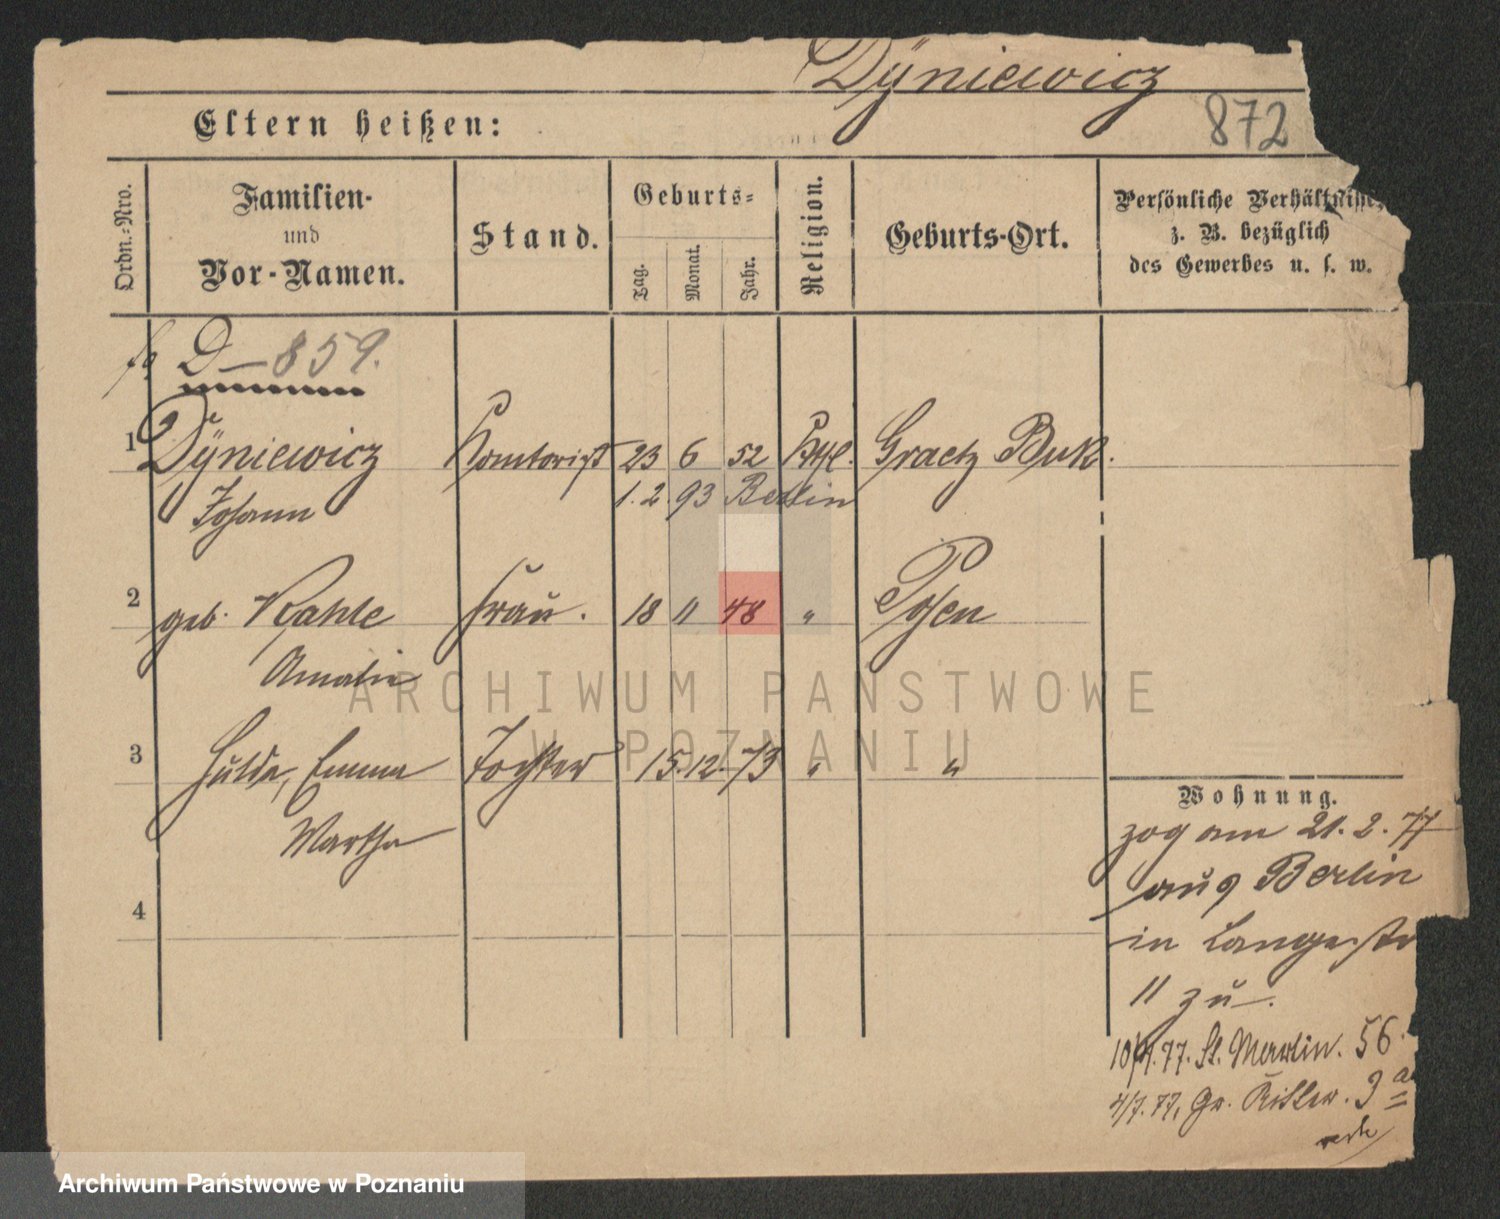 Dÿniewicz
872
Eltern heißen:
Ordn.-Nro.
Familien-
und
Vor-Namen.
Stand.
Geburts-
Tag.
Monat.
Jahr.
Religion.
Geburts-Ort.
Persönliche Verhältnisse,
z. B. bezüglich
des Gewerbes u. s. w.
D—859.
1 Dÿniewicz Komtorist 23 6 52 Kthl. Graetz Buk.
Johann 1. 2. 93 Berlin
2 geb. Kahle Frau. 18 11 48 " Posen
Amalie
3 Hulda, Emma Tochter 15. 12. 73 " "
Martha
4
Wohnung.
zog am 21. 2. 77
aus Berlin
in Langestr
11 zu.
77. St. Martin. 56.
4/7. 77, Gr. Ritter. 9 a
ARCHIWUM PAŃSTWOWE
W POZNANIU
Archiwum Państwowe w Poznaniu